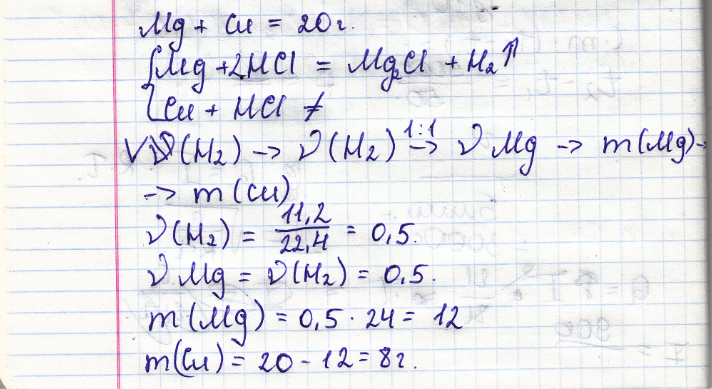 Mg + Cu = 20г.
{Mg + 2HCl = Mg2Cl + H2↑
{Cu + HCl ≠
V(H2) → ν(H2) 1:1→ ν Mg → m(Mg) →
→ m(Cu)
ν(H2) = 11,2/22,4 = 0,5.
ν Mg = ν(H2) = 0,5.
m(Mg) = 0,5 · 24 = 12
m(Cu) = 20 - 12 = 8г.